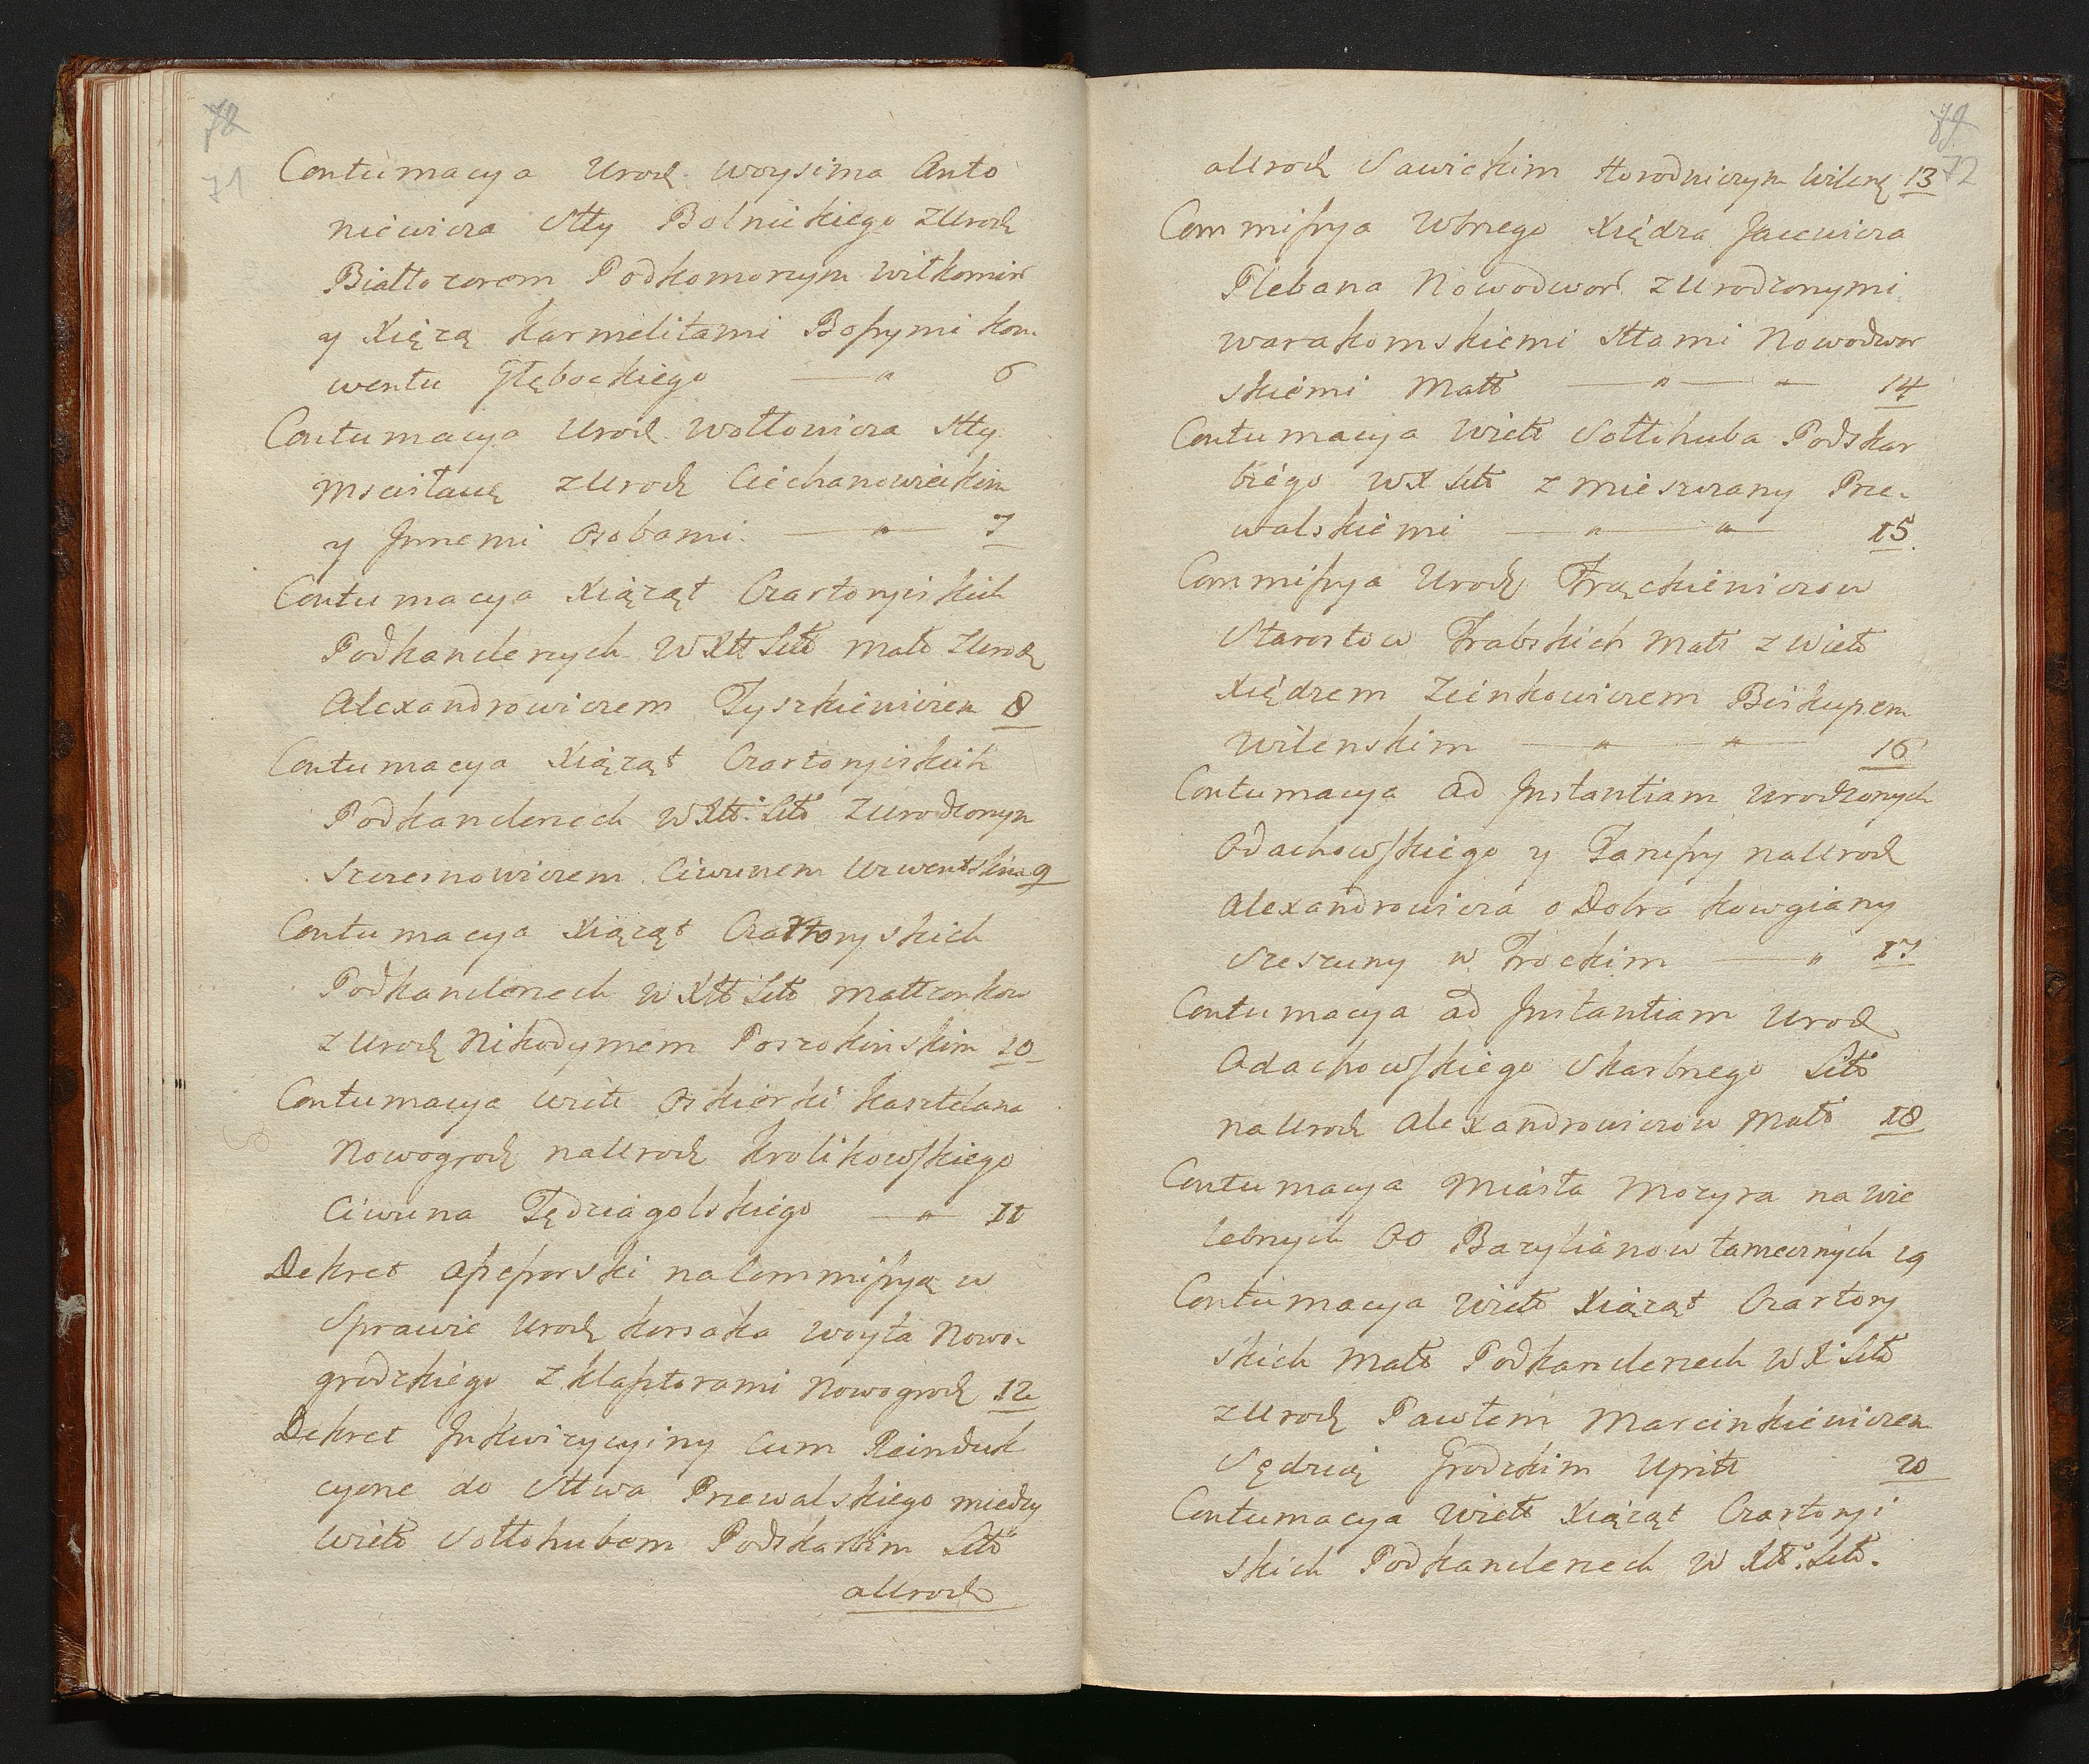 78
71
Contumacya Urodz. Woysima Anto
niewicza Stty Bolnickiego z Urodz
Białłozorem Podkomorzym Wiłkomir
y Xięzą Karmelitami Bossymi kon-
wentu Głębockiego — " 6
Contumacya Urodz. Wołłowicza Stty
Mscisławę z Urodz Ciechanowieckim
y Jnnemi Osobami. — " — 7
Contumacya Xiążąt Czartoryiskich
Podkanclerzych W Xtt Litt Małż z Urodz
Alexandrowiczem Tyszkiewiczem 8
Contumacya Xiążąt Czartoryiskich
Podkanclerzech W Xtt: Litt z Urodzonym
Szczesnowiczem Ciwunem Uzwentskim 9
Contumacya Xiążąt Czartoryskich
Podkanclerzech W Xtt Litt Małłzonkow
z Urodz Nikodymem Poszokinskim 10
Contumacya Wielt Oskierki Kasztelana
Nowogrodz na Urodz Krolikowskiego
Ciwuna Tędziagolskiego — " — 11
Dekret Assessorski na Commissyą w
Sprawie Urodz Korsaka Woyta Nowo-
grodzkiego z Klasztorami Nowogrodz 12
Dekret Jnkwizycyiny cum Reinduk
cyone do Sttwa Przewalskiego miedzy
Wielt Sołłohubem Podskarbim Litt
a Urodz
79
72
a Urodz Sawickim Horodniczym Wilenę 13
Commissya Wbnego Xiędza Jacewicza
Plebana Nowodwor. z Urodzonymi
Warakomskiemi Sttami Nowodwor
skiemi Małż — " — " — 14
Contumacya Wielt Sołłohuba Podskar
biego W X Litt z Mieszczany Prze-
walskiemi — " — " — 15
Commissya Urodz Frąckiewiczow
Starostow Trabskich Małż z Wielt
Xiędzem Zienkowiczem Biskupem
Wilenskim — " — " — 16
Contumacya ad Jnstantiam Urodzonych
Odachowskiego y na Urodz
Alexandrowicza o Dobra Kowgiany
Szeszuny w Trockim — " 17
Contumacya ad Jnstantiam Urodz
Odachowskiego Skarbnego Litt
na Urodz Alexandrowiczow Małż 18
Contumacya Miasta Mozyra na Wie
lebnych OO Bazylianow tamecznych 19
Contumacya Wielt Xiążąt Czartory
skich Małż Podkanclerzech W X Litt
z Urodz Pawłem Marcinkiewiczem
Sędzią Grodzkim Upitt 20
Contumacya Wielt Xiążąt Czartoryi
skich Podkanclerzech W Xtt: Litt.